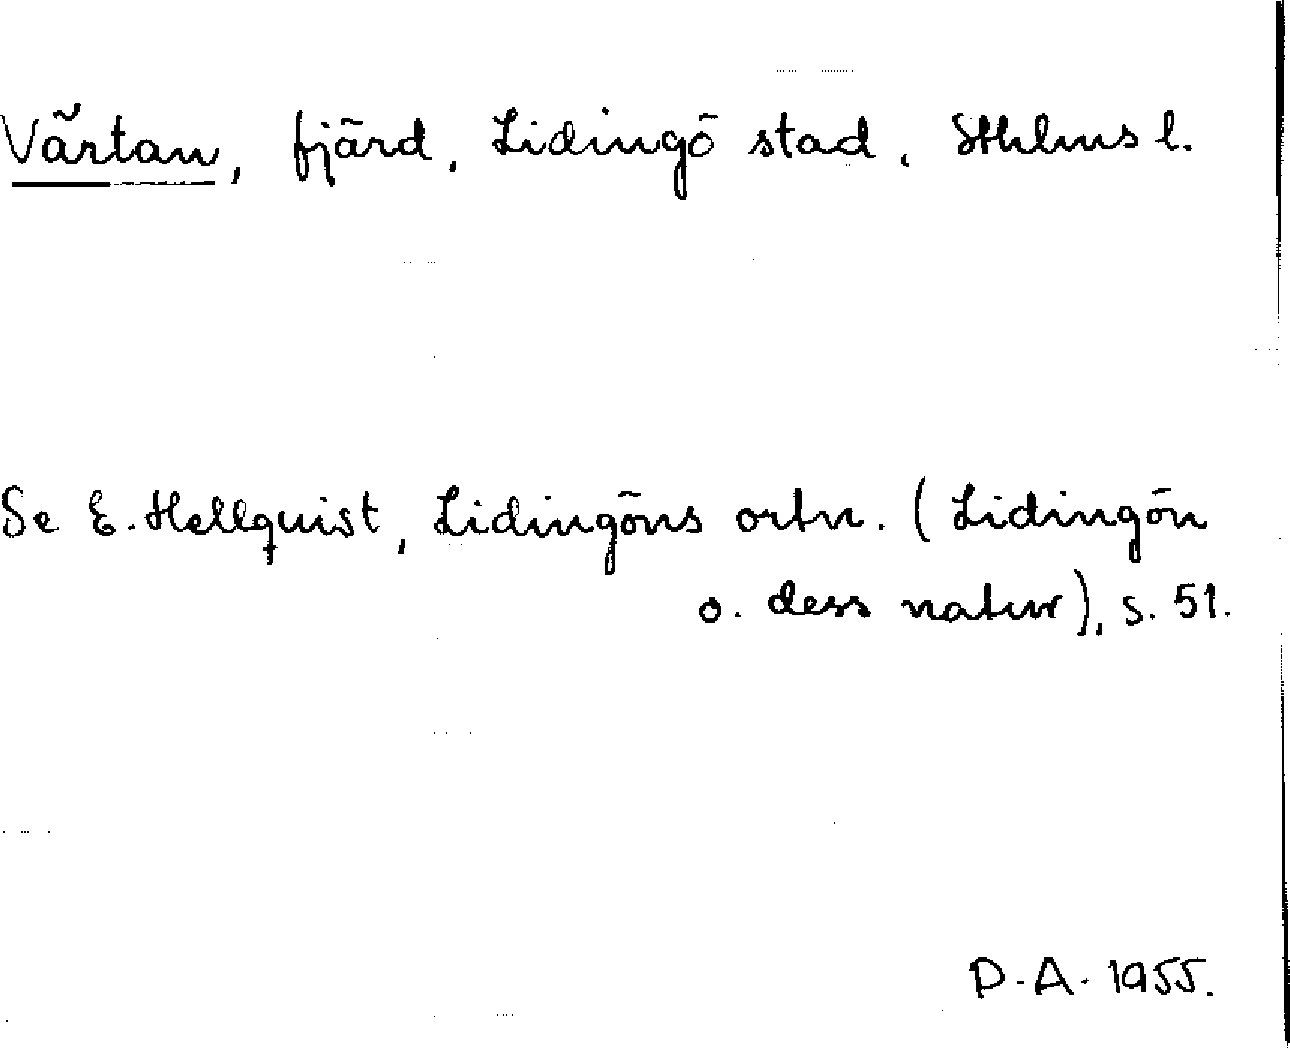 Värtan, fjärd, Lidingö stad, Sthlms l.
Se E. Hellquist, Lidingöns ortn. (Lidingön
o. dess natur), s. 51.
D. A. 1955.